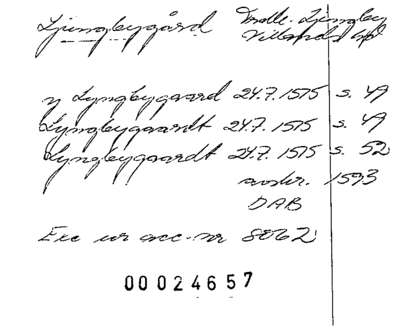 Ljungbygård Trolle-Ljungby
Villands hd
y Lyngbygaard 24.7.1575 s. 49
Lyngbygaardt 24.7.1575 s. 49
Lyngbygaardt 24.7.1575 s. 52
avskr. 1593
DAB
Exc ur acc-nr 8062
00024657